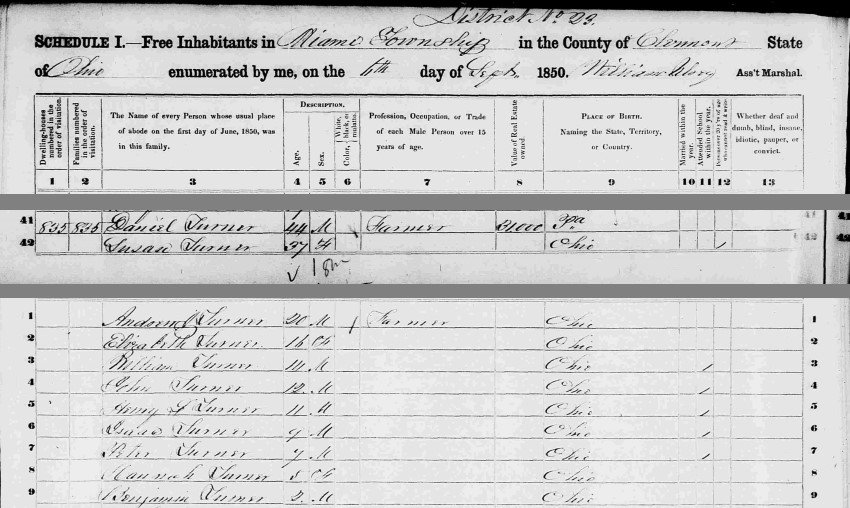 District No 23.
SCHEDULE I.—Free Inhabitants in Miami Township in the County of Clermont State
of Ohio enumerated by me, on the 6th day of Sept. 1850. William Ass't Marshal.
Dwelling-houses numbered in the order of visitation.
Families numbered in the order of visitation.
The Name of every Person whose usual place of abode on the first day of June, 1850, was in this family.
DESCRIPTION.
Age.
Sex.
Color, White, black, or mulatto.
Profession, Occupation, or Trade of each Male Person over 15 years of age.
Value of Real Estate owned
PLACE OF BIRTH. Naming the State, Territory, or Country.
Married within the year.
Attended School within the year.
Persons over 20 y'rs of age who cannot read & write.
Whether deaf and dumb, blind, insane, idiotic, pauper, or convict.
1 2 3 4 5 6 7 8 9 10 11 12 13
41 835 835 Daniel Turner 44 M Farmer Pa 41
42 Susan Turner 37 F Ohio / 42
1 Andrew J Turner 20 M Farmer Ohio 1
2 Elizabeth Turner 16 F Ohio 2
3 William Turner 14 M Ohio / 3
4 John Turner 12 M Ohio / 4
5 Henry S Turner 11 M Ohio / 5
6 Isaac Turner 9 M Ohio / 6
7 Peter Turner 7 M Ohio / 7
8 Hannah Turner 5 F Ohio 8
9 Benjamin Turner 2 M Ohio 9